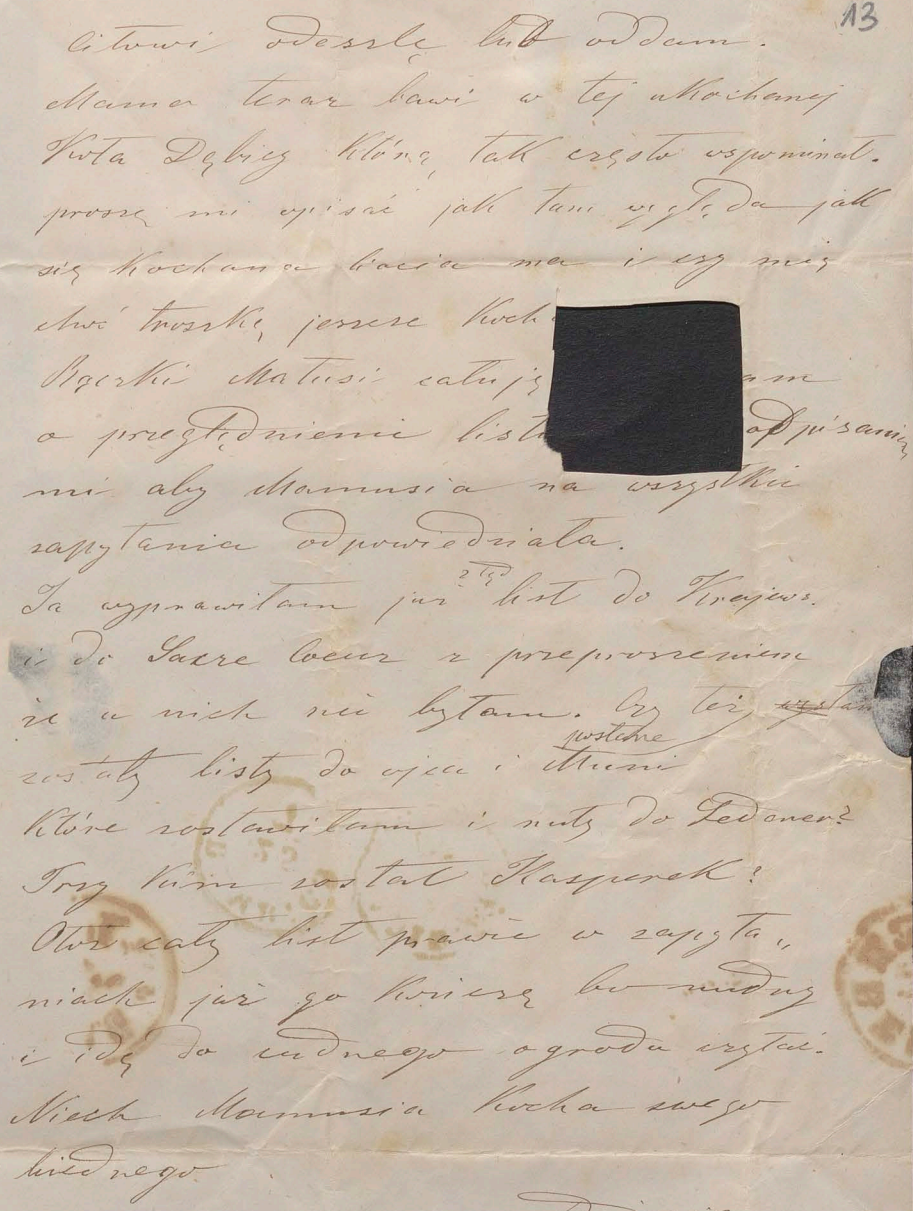 13
odeszlę lub oddam.
Mama teraz bawi w tej ukochanej
Dębicy którą tak często wspominał.
proszę mi opisać jak tam wygląda jak
się kochana ma i czy mię
choć troszkę jeszcze koch
Rączki Matusi całuję am
o przeglądnienie listu odpisanie
mi aby Mamusia na wszystkie
zapytania odpowiedziała.
Ja wyprawiłam już ztąd list do Krajews.
i do Sacre Coeur z przeproszeniem
że u nich nie byłam. Czy też
zostały listy do ojca i Muni posłane
które zostawiłam i nuty do Lederer?
Przy kim został Kasparek?
Otóż cały list prawie w zapyta„
niach już go kończę bo nudny
i idę do cudnego ogrodu czytać.
Niech Mamusia kocha swego
biednego